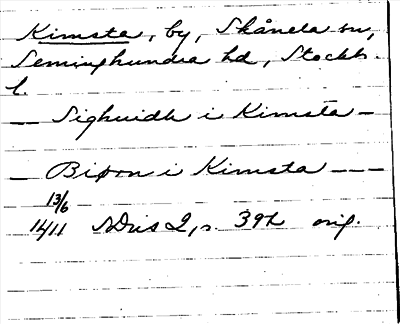 Kimsta, by, Skånela sn,
Seminghundra hd, Stockh.
l.
— Sighuidh i Kimsta —
— Biørn i Kimsta — — —
13/6
1411 NDris 2, s. 392 orig.